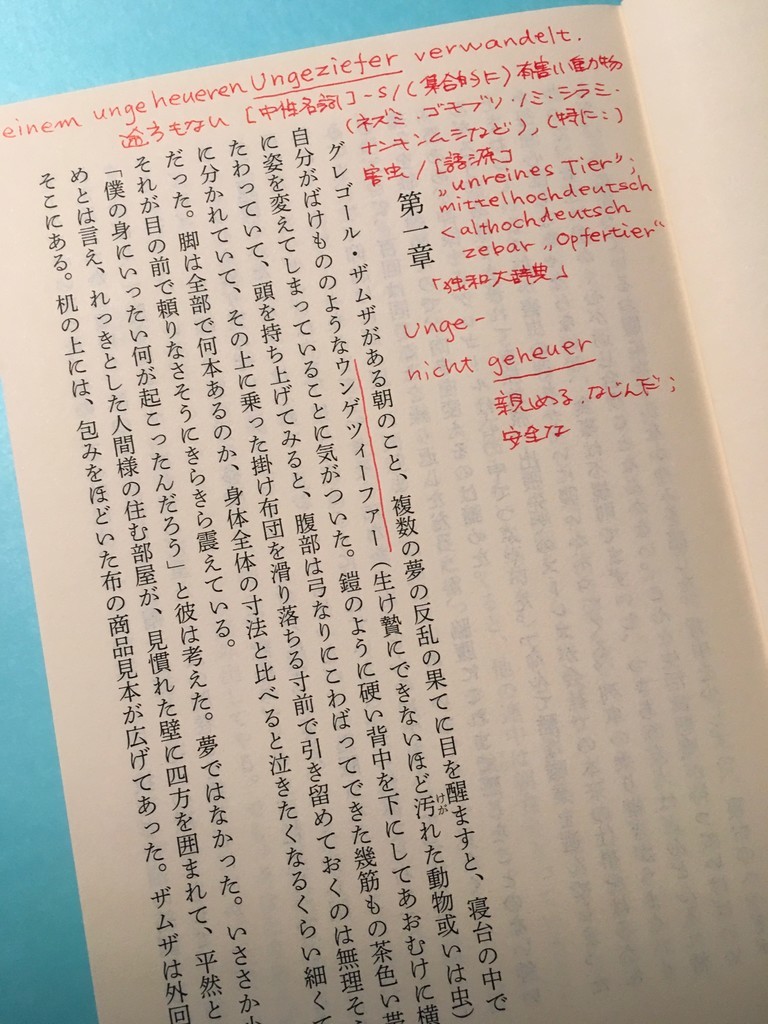 einem ungeheueren Ungeziefer verwandelt.
途方もない [中性名詞] -s/(集合的に) 有害い動物
(ネズミ・ゴキブリ・ノミ・シラミ・
ナンキンムシなど), (特に:)
害虫 / [語源]
„unreines Tier";
mittelhochdeutsch
< althochdeutsch
zebar „Opfertier"
「独和大辞典」
Unge-
nicht geheuer
親しめる、なじんだ;
安全な
第一章
グレゴール・ザムザがある朝のこと、複数の夢の反乱の果てに目を醒ますと、寝台の中で
自分がばけもののようなウンゲツィーファー(生け贄にできないほど汚(けが)れた動物或いは虫)
に姿を変えてしまっていることに気がついた。鎧のように硬い背中を下にしてあおむけに横
たわっていて、頭を持ち上げてみると、腹部は弓なりにこわばってできた幾筋もの茶色い帯
に分かれていて、その上に乗った掛け布団を滑り落ちる寸前で引き留めておくのは無理そう
だった。脚は全部で何本あるのか、身体全体の寸法と比べると泣きたくなるくらい細くて
それが目の前で頼りなさそうにきらきら震えている。
「僕の身にいったい何が起こったんだろう」と彼は考えた。夢ではなかった。いささか小
めとは言え、れっきとした人間様の住む部屋が、見慣れた壁に四方を囲まれて、平然と
そこにある。机の上には、包みをほどいた布の商品見本が広げてあった。ザムザは外回